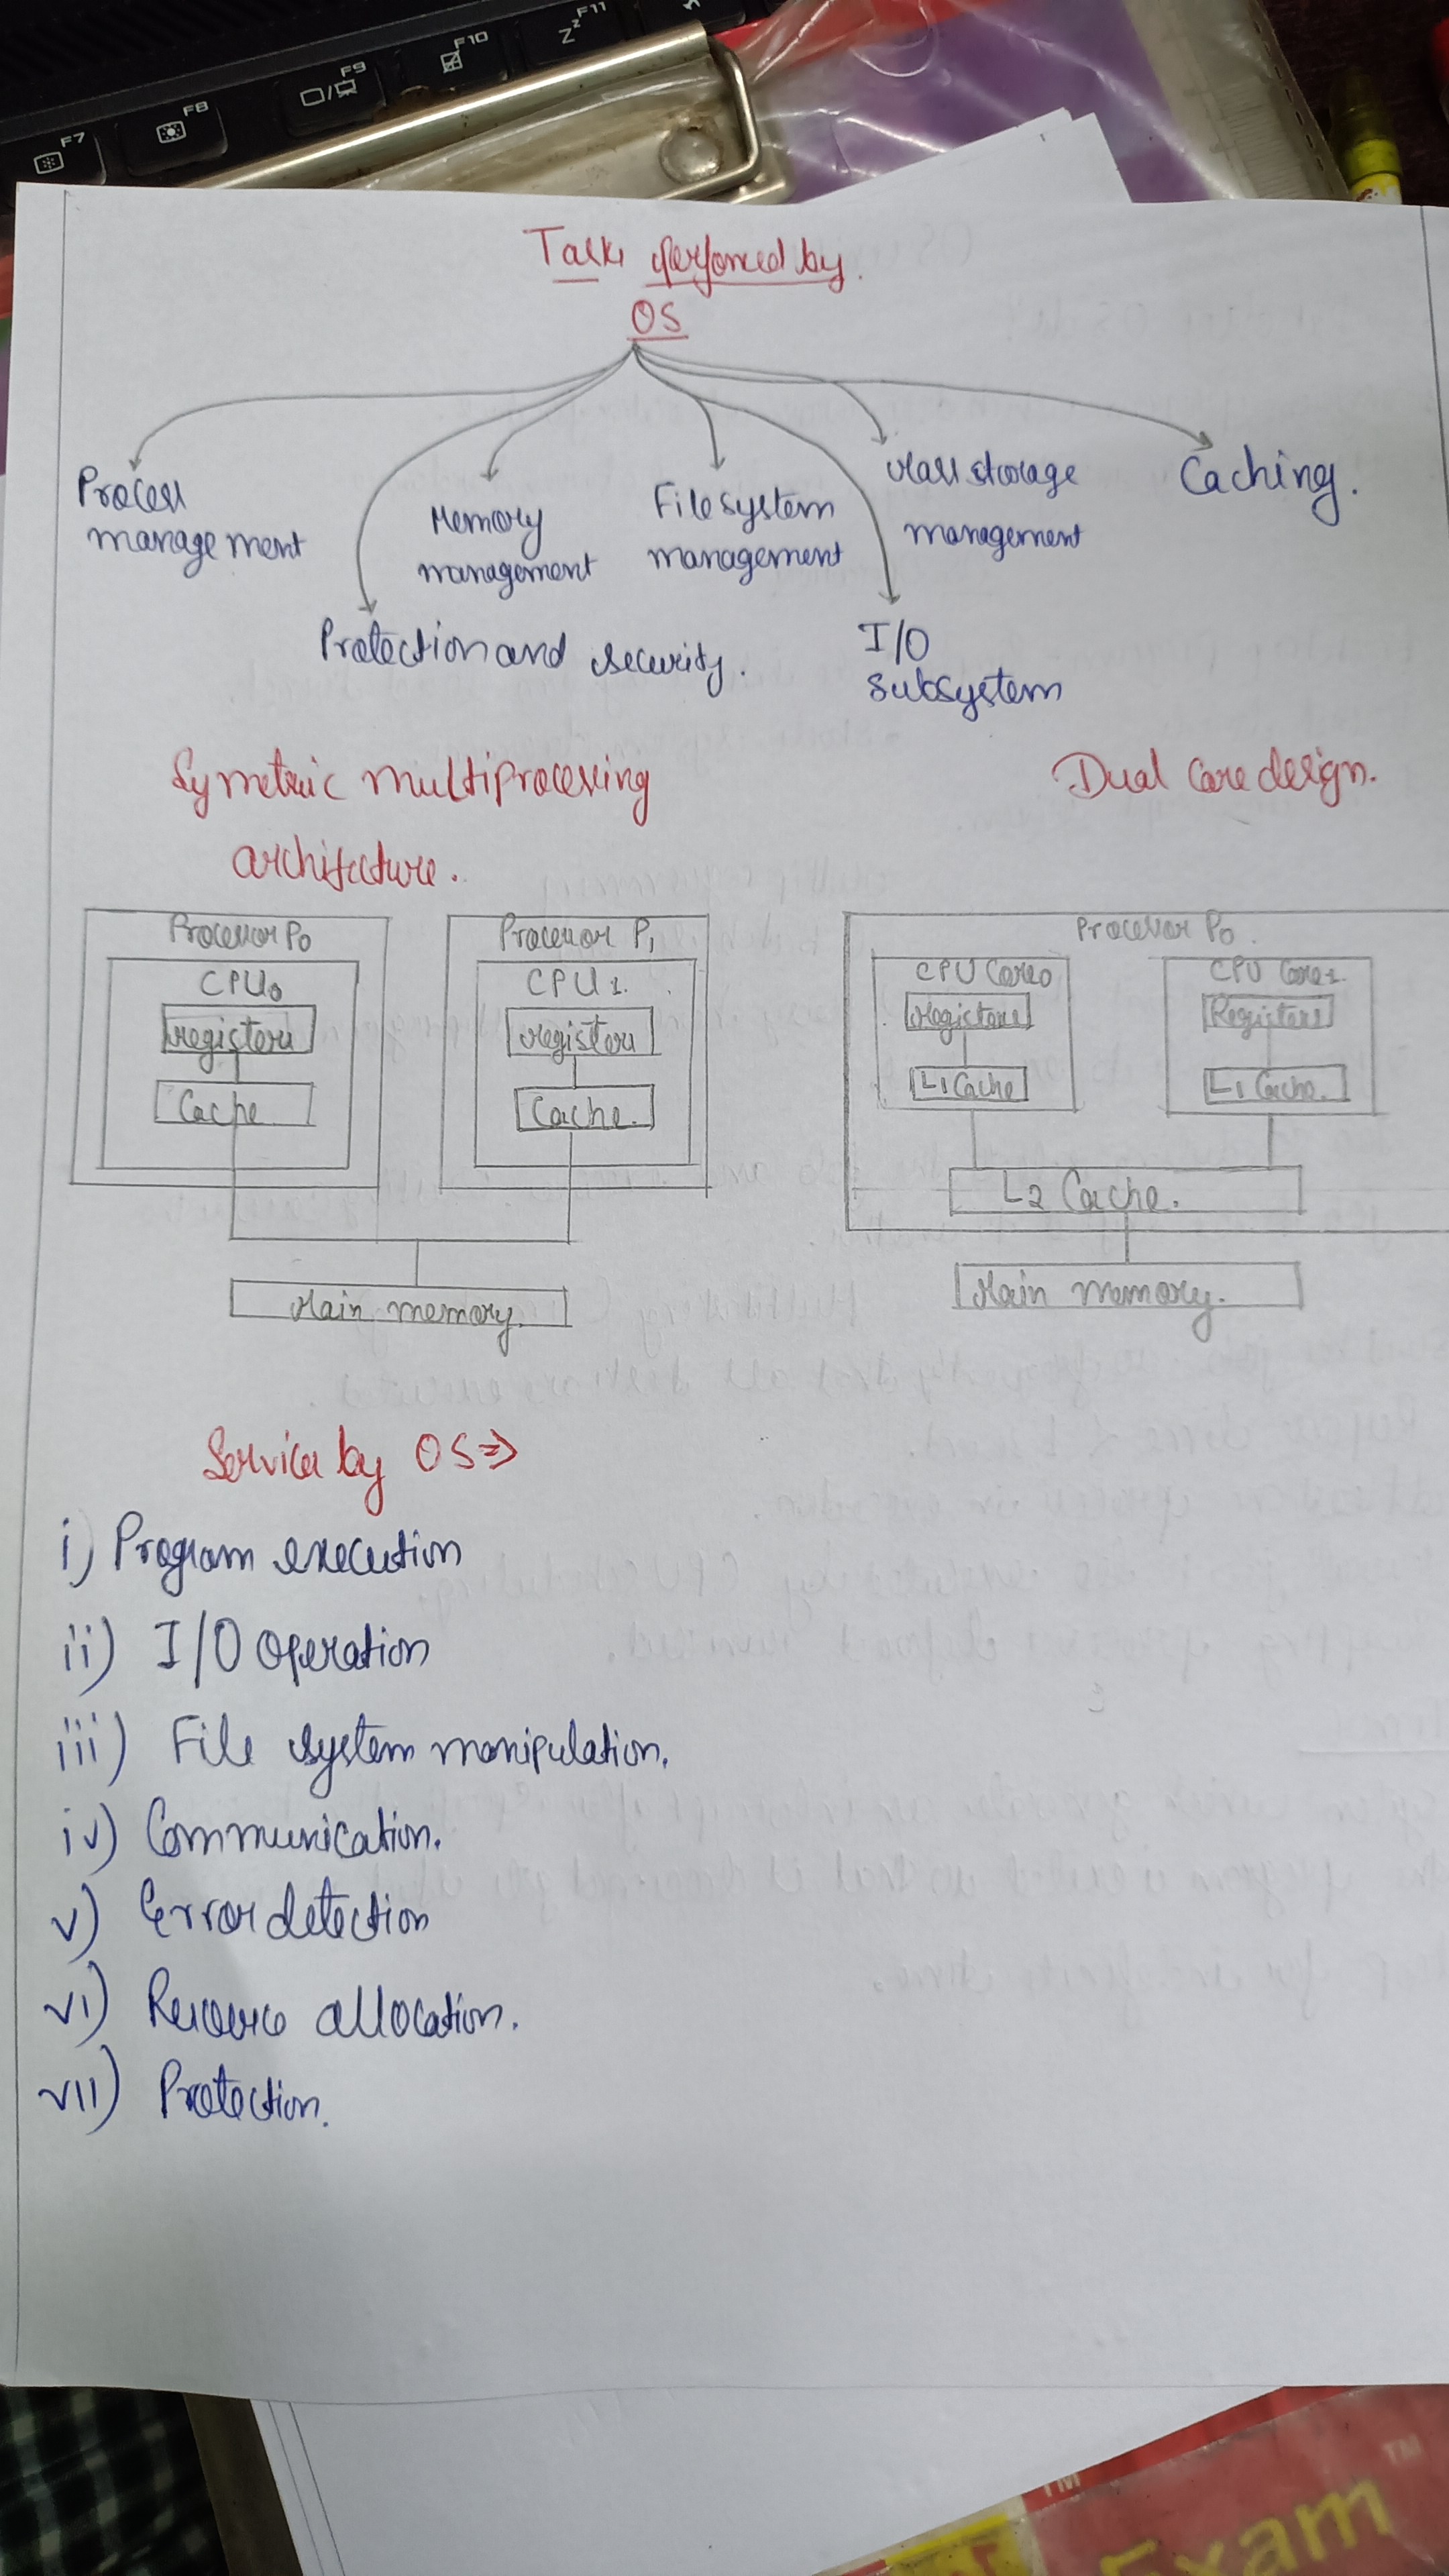 F7
F8
F9
F10
F11
Zz
Tasks perfomed by.
OS
Process
management
Memory
management
File system
management
Mass storage
management
Caching.
Protection and security.
I/O
Subsystem
Symetric multiprocessing
architecture.
Dual Core design.
Processor P0
CPU0
registers
Cache
Processor P1
CPU 1.
registers
Cache.
Main memory.
Processor P0.
CPU Core0
registers
L1 Cache
CPU Core1.
Registers
L1 Cache.
L2 Cache.
Main memory.
Services by OS ⇒
i) Program execution
ii) I/O operation
iii) File system manipulation.
iv) Communication.
v) Error detection
vi) Resource allocation.
vii) Protection.
TM
TM
Exam